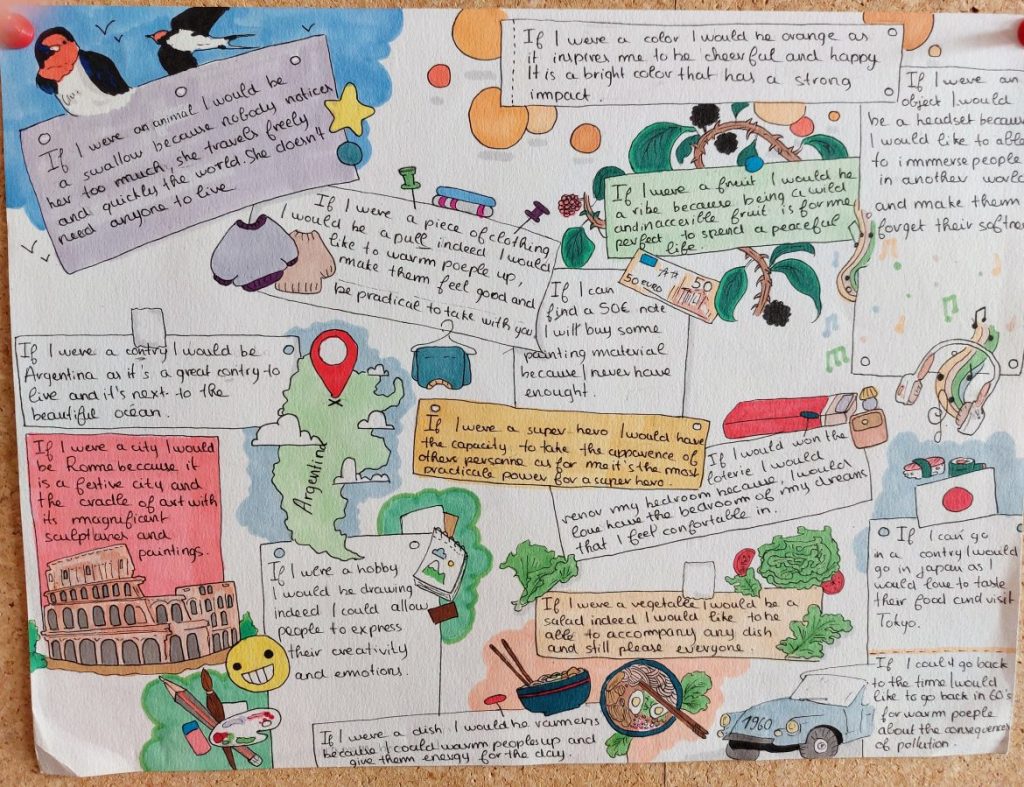 If I were an animal I would be
a swallow because nobody notices
her too much, she travels freely
and quickly the world. She doesn't
need anyone to live
If I were a color I would be orange as
it inspires me to be cheerful and happy
It is a bright color that has a strong
impact.
If I were an
object I would
be a headset because
I would like to able
to immerse people
in another world
and make them
forget their
If I were a fruit I would be
a ribe because being a wild
and inaccessible fruit is for me
perfect to spend a peaceful
life.
If I were a piece of clothing
I would be a pull indeed I would
like to warm poeple up,
make them feel good and
be practical to take with you
50 EURO
50
If I can
find a 50€ note
I will buy some
painting material
because I never have
enought.
If I were a contry I would be
Argentina as it's a great contry to
live and it's next to the
beautiful océan.
Argentina
If I were a city I would
be Romme because it
is a festive city and
the cradle of art with
its magnificent
sculptures and
paintings.
If I were a super hero I would have
the capacity to take the
others personne as for me it's the most
practicale power for a super hero.
If I would won the
loterie I would
renov my bedroom because, I would
love have the bedroom of my dreams
that I feel confortable in.
If I were a hobby
I would be drawing
indeed I could allow
people to express
their creativity
and emotions.
If I were a vegetable I would be a
salad indeed I would like to be
able to accompany any dish
and still please everyone.
If I can go
in a contry I would
go in japan as I
would love to taste
their food and visit
Tokyo.
If I were a dish I would be ramens
because I could warm peoples up and
give them energy for the day.
1960
If I could go back
to the time I would
like to go back in 60's
for warm poeple
about the consequences
of pollution.